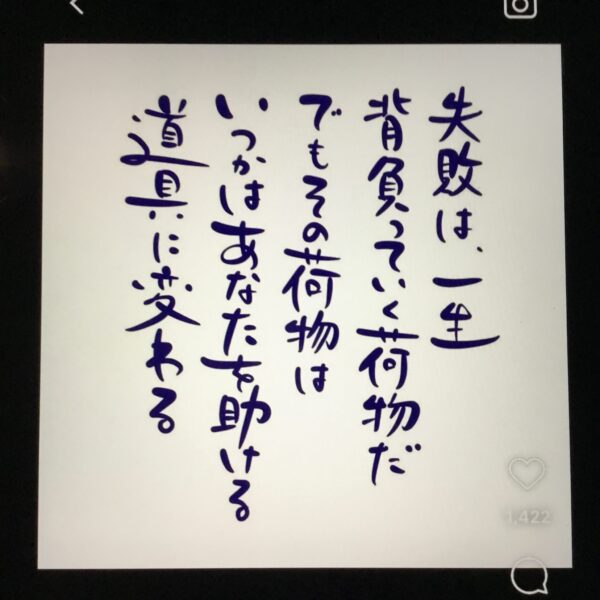 失敗は、一生
背負っていく荷物だ
でもその荷物は
いつかはあなたを助ける
道具に変わる
1,422